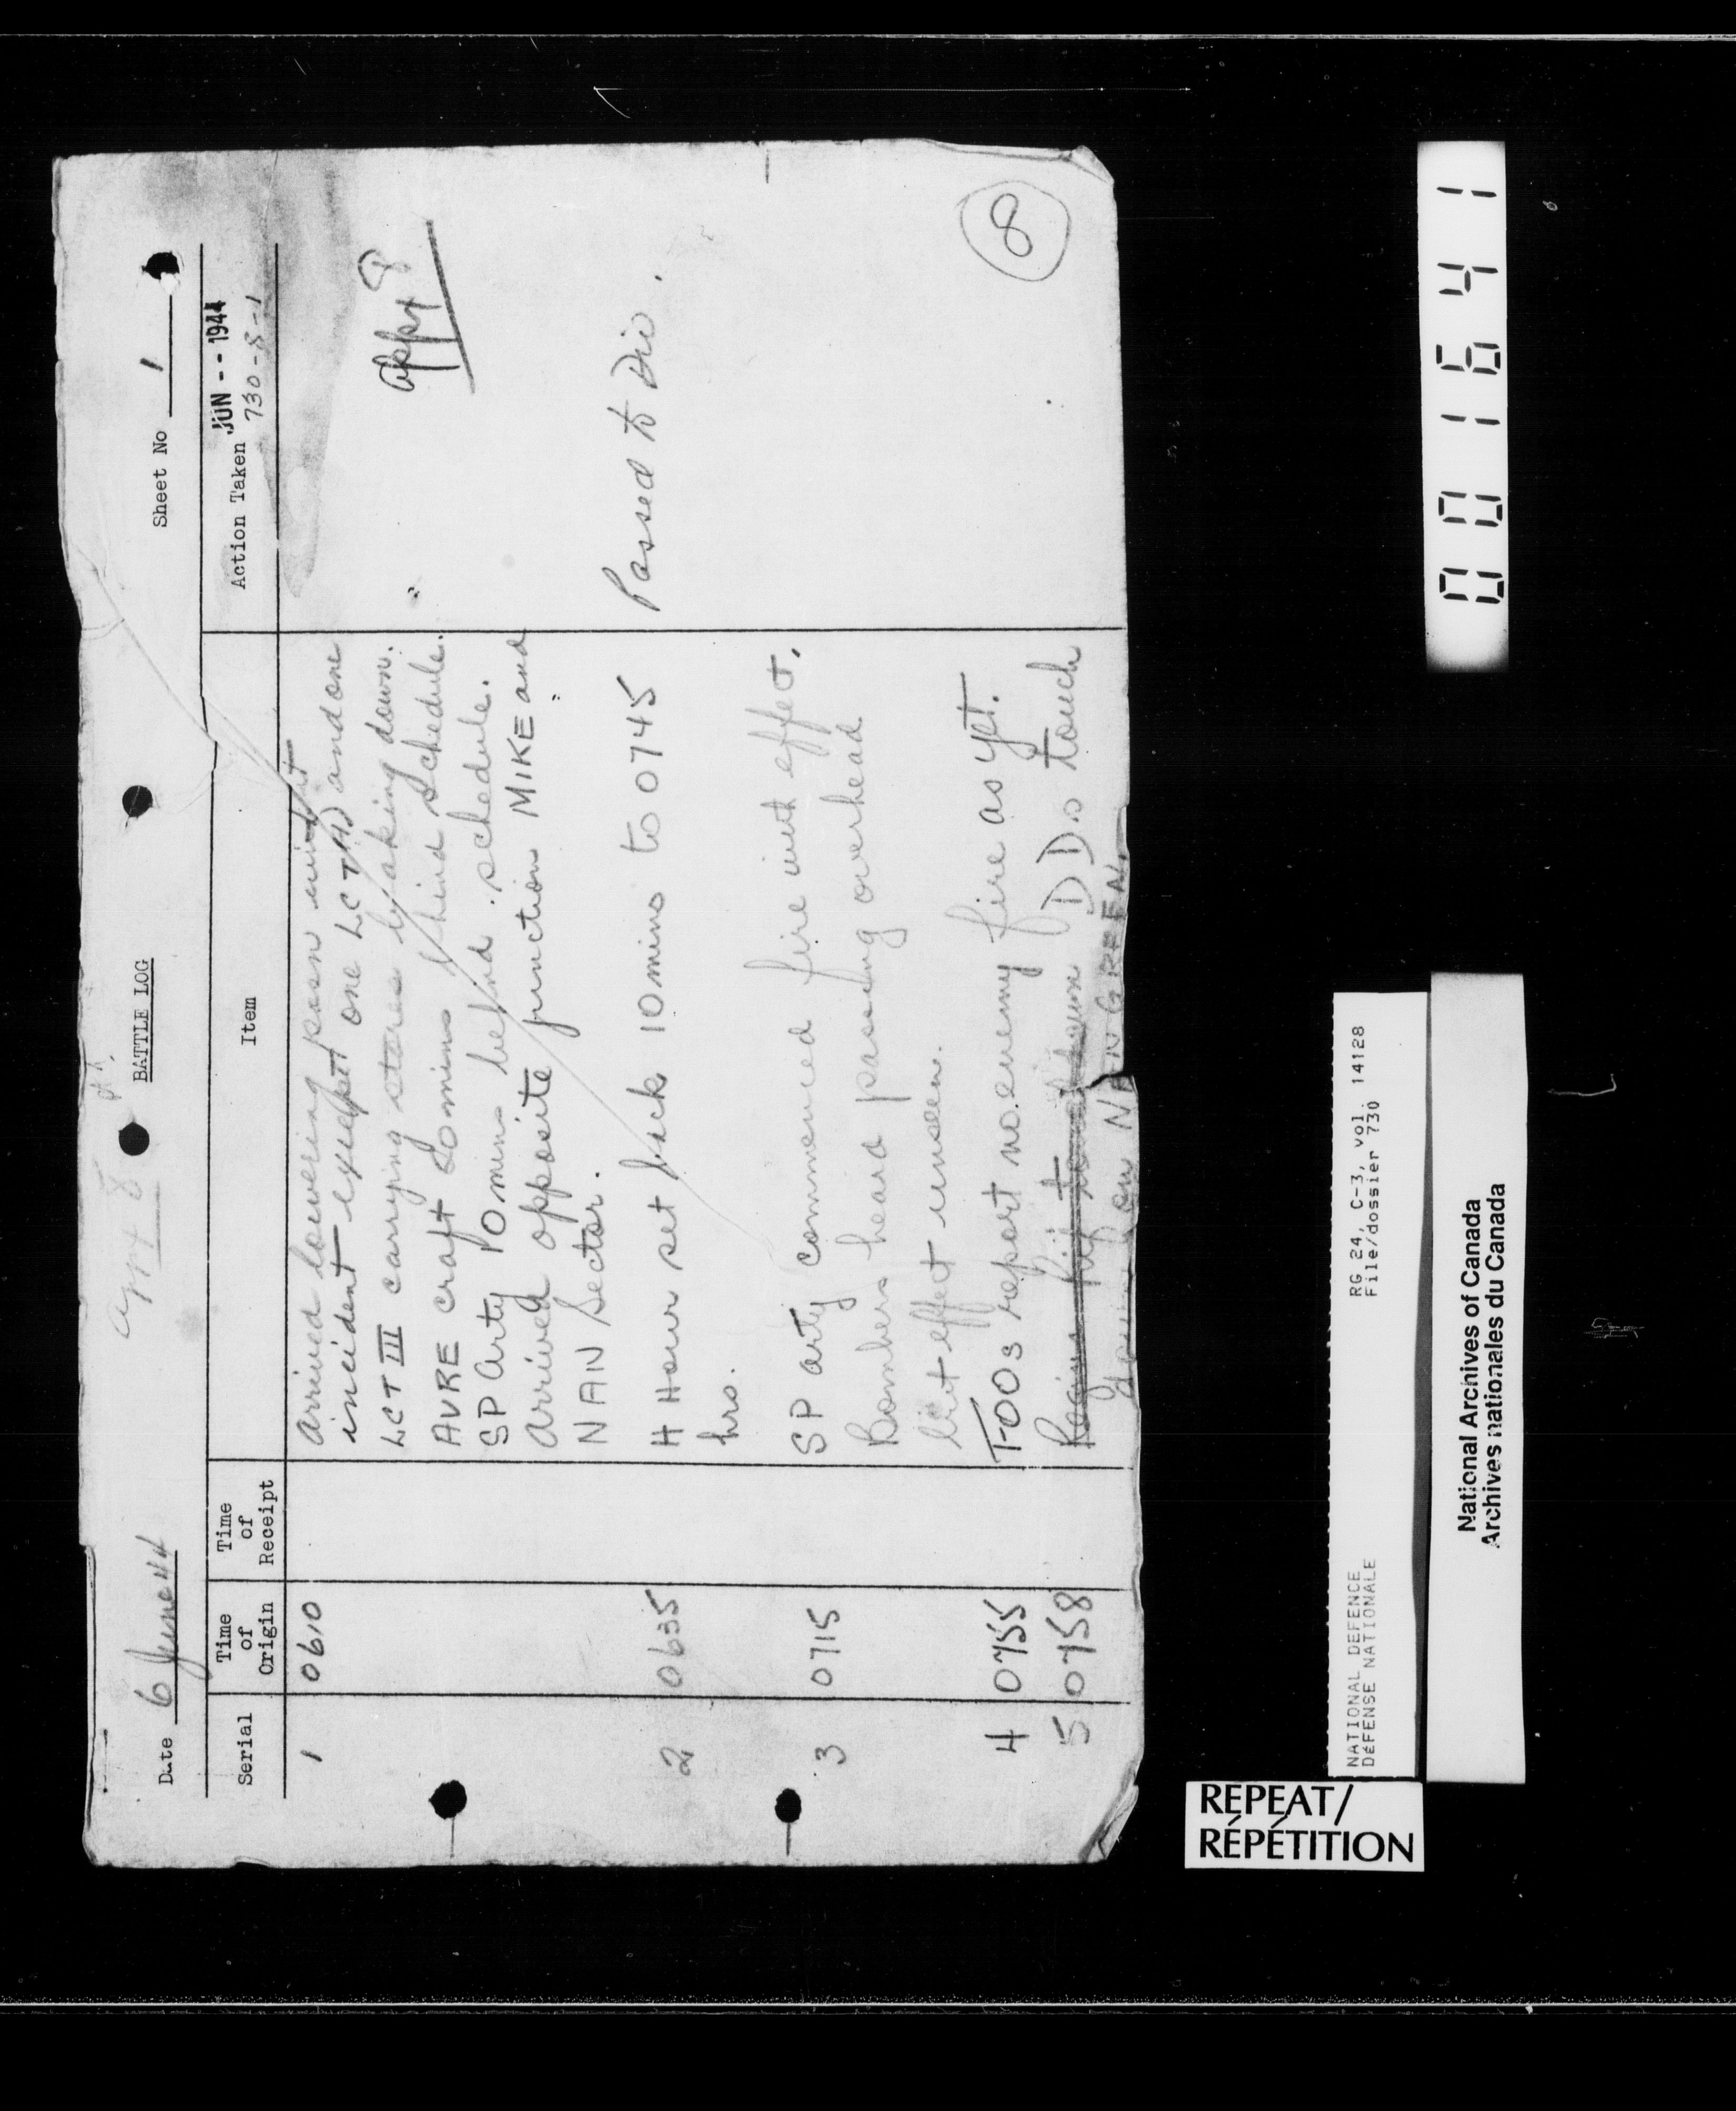 appx 8
BATTLE LOG
Date 6 June 44
Sheet No 1
Serial
Time of Origin
Time of Receipt
Item
Action Taken
JUN -- 1944
730-8-1
appx 8
1 0610 Arrived lowering posn without
incident except one LCT (H) and one
LCT III carrying stores breaking down.
AVRE craft 20 mins behind schedule.
SP Arty 10 mins behind schedule.
Arrived opposite junction MIKE and
NAN Sector.
2 0635 H Hour set back 10 mins to 0745 Passed to Div.
hrs.
3 0715 SP arty commenced fire with effect.
Bombers heard passing overhead
but effect unseen.
4 0755 FOOs report no enemy fire as yet.
5 0758 Regina Rif touch down DDs touch
down on NAN GREEN.
8
001641
NATIONAL DEFENCE
DÉFENSE NATIONALE
RG 24, C-3, vol. 14128
File/dossier 730
National Archives of Canada
Archives nationales du Canada
REPEAT/
RÉPÉTITION